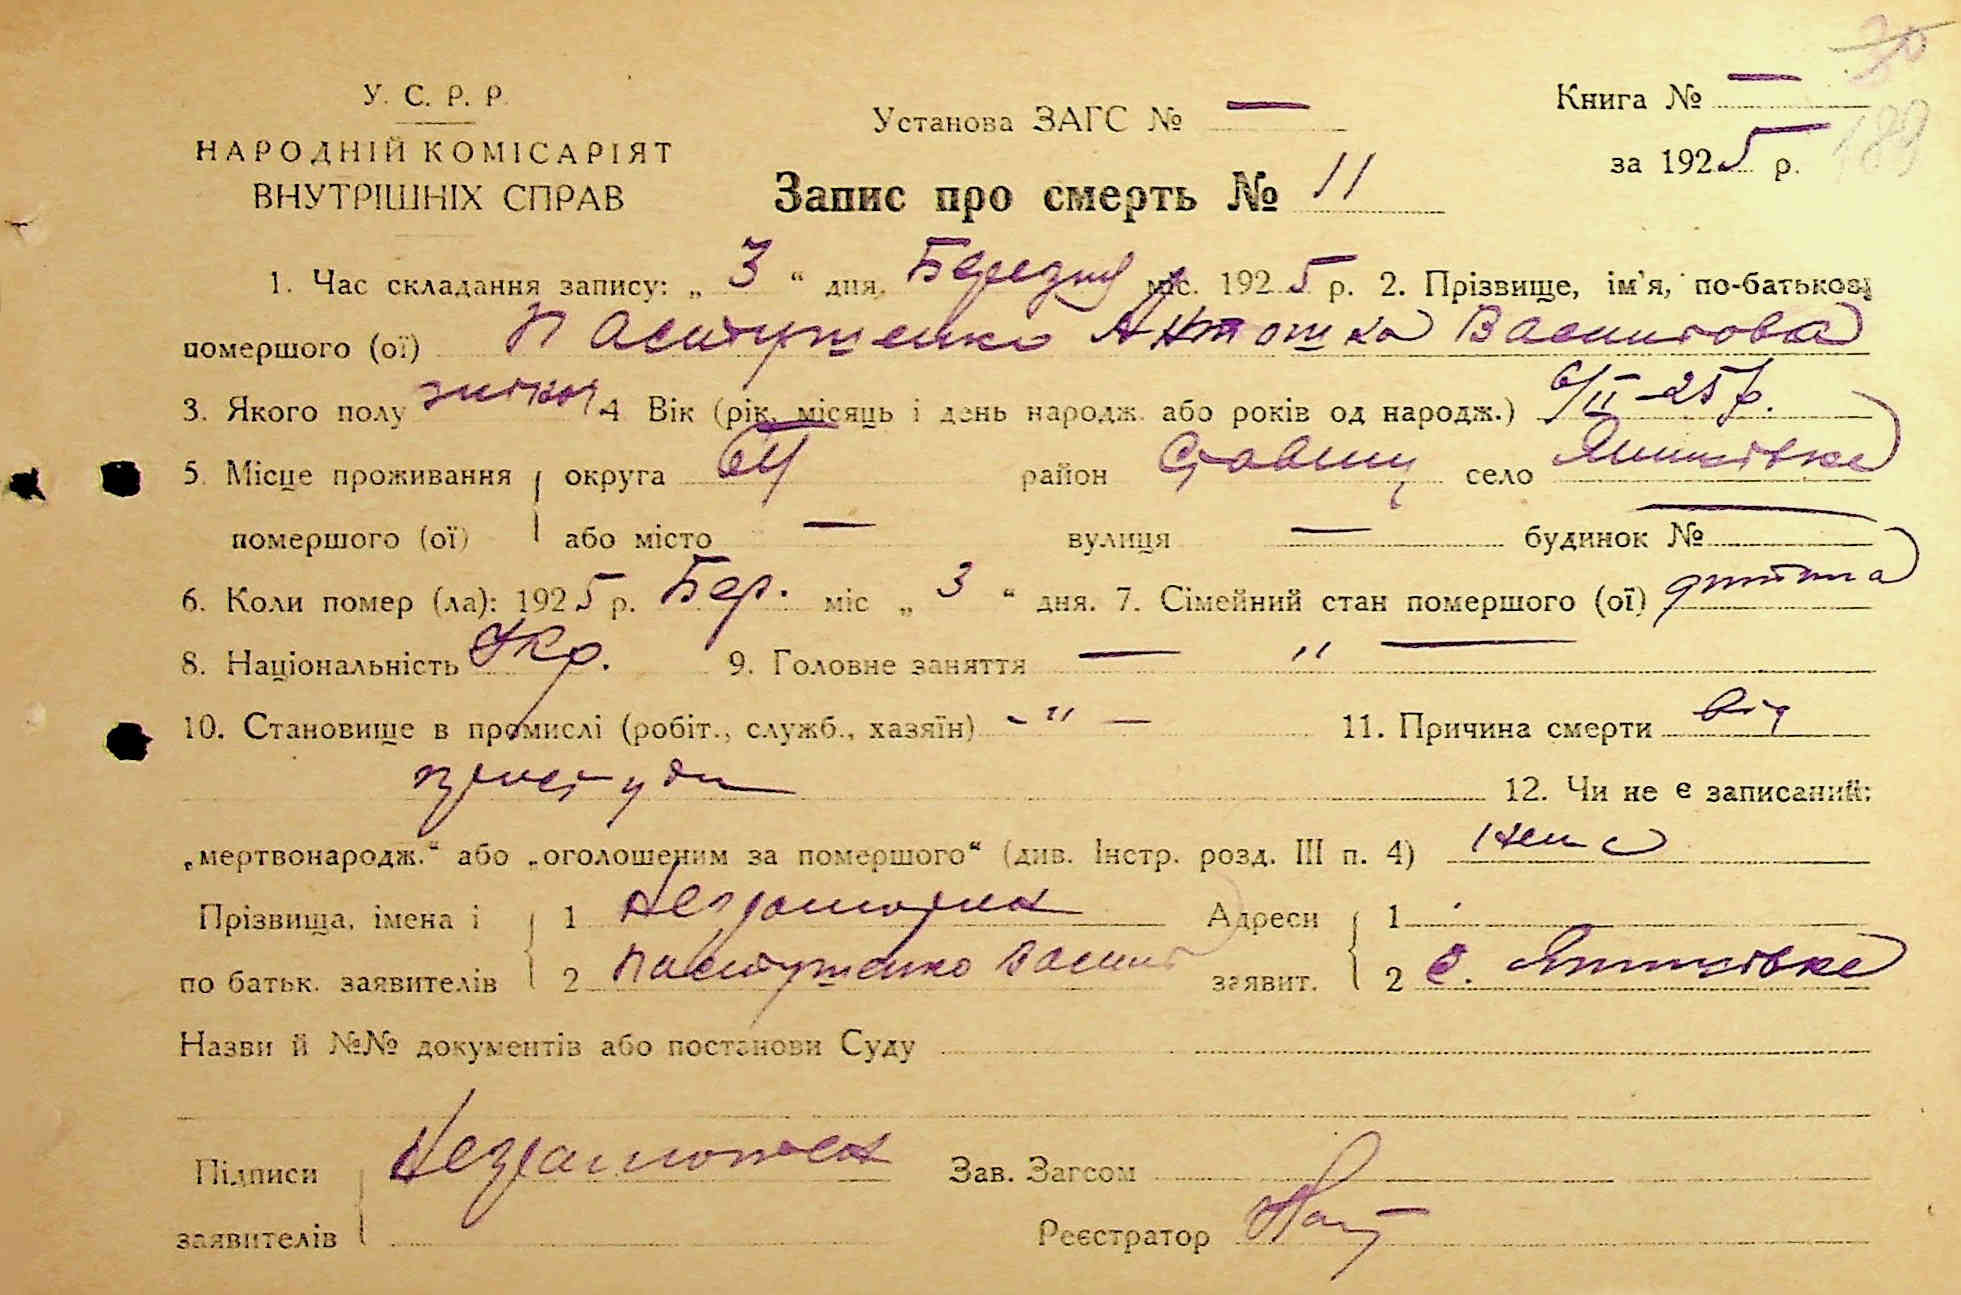 30
189
У. С. Р. Р.
НАРОДНІЙ КОМІСАРІЯТ
ВНУТРІШНІХ СПРАВ
Установа ЗАГС № —
Книга № —
за 1925 р.
Запис про смерть № 11
1. Час складання запису: „ 3 “ дня. Березня міс. 1925 р. 2. Прізвище, ім'я, по-батькові
помершого (ої) Пастушенко Антошка Василова
3. Якого полу 4 Вік (рік, місяць і день народж. або років од народж.) 6/II–25 р.
5. Місце проживання округа БЦ район Ставищ село
помершого (ої) або місто — вулиця — будинок № —
6. Коли помер (ла): 1925 р. Бер. міс „ 3 “ дня. 7. Сімейний стан помершого (ої) дитина
8. Національність Укр. 9. Головне заняття — " —
10. Становище в промислі (робіт., служб., хазяїн) - " — 11. Причина смерти від
простуди 12. Чи не є записаний:
„мертвонародж.“ або „оголошеним за помершого“ (див. Інстр. розд. III п. 4)
Прізвища, імена і 1 Адреси 1
по батьк. заявителів 2 Пастушенко Васил заявит. 2 с.
Назви й №№ документів або постанови Суду
Підписи Зав. Загсом
заявителів Реєстратор